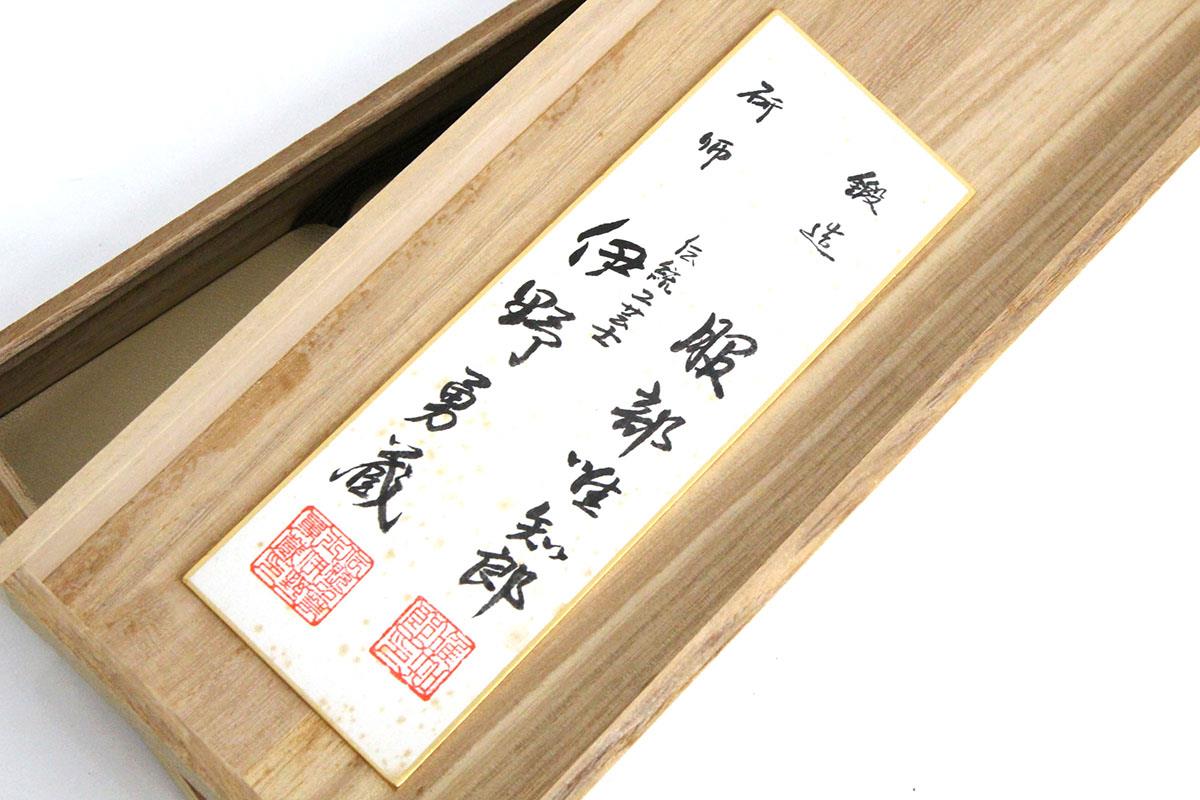 鍛造
服部唯知郎
研師
伝統工芸士
伊野勇蔵